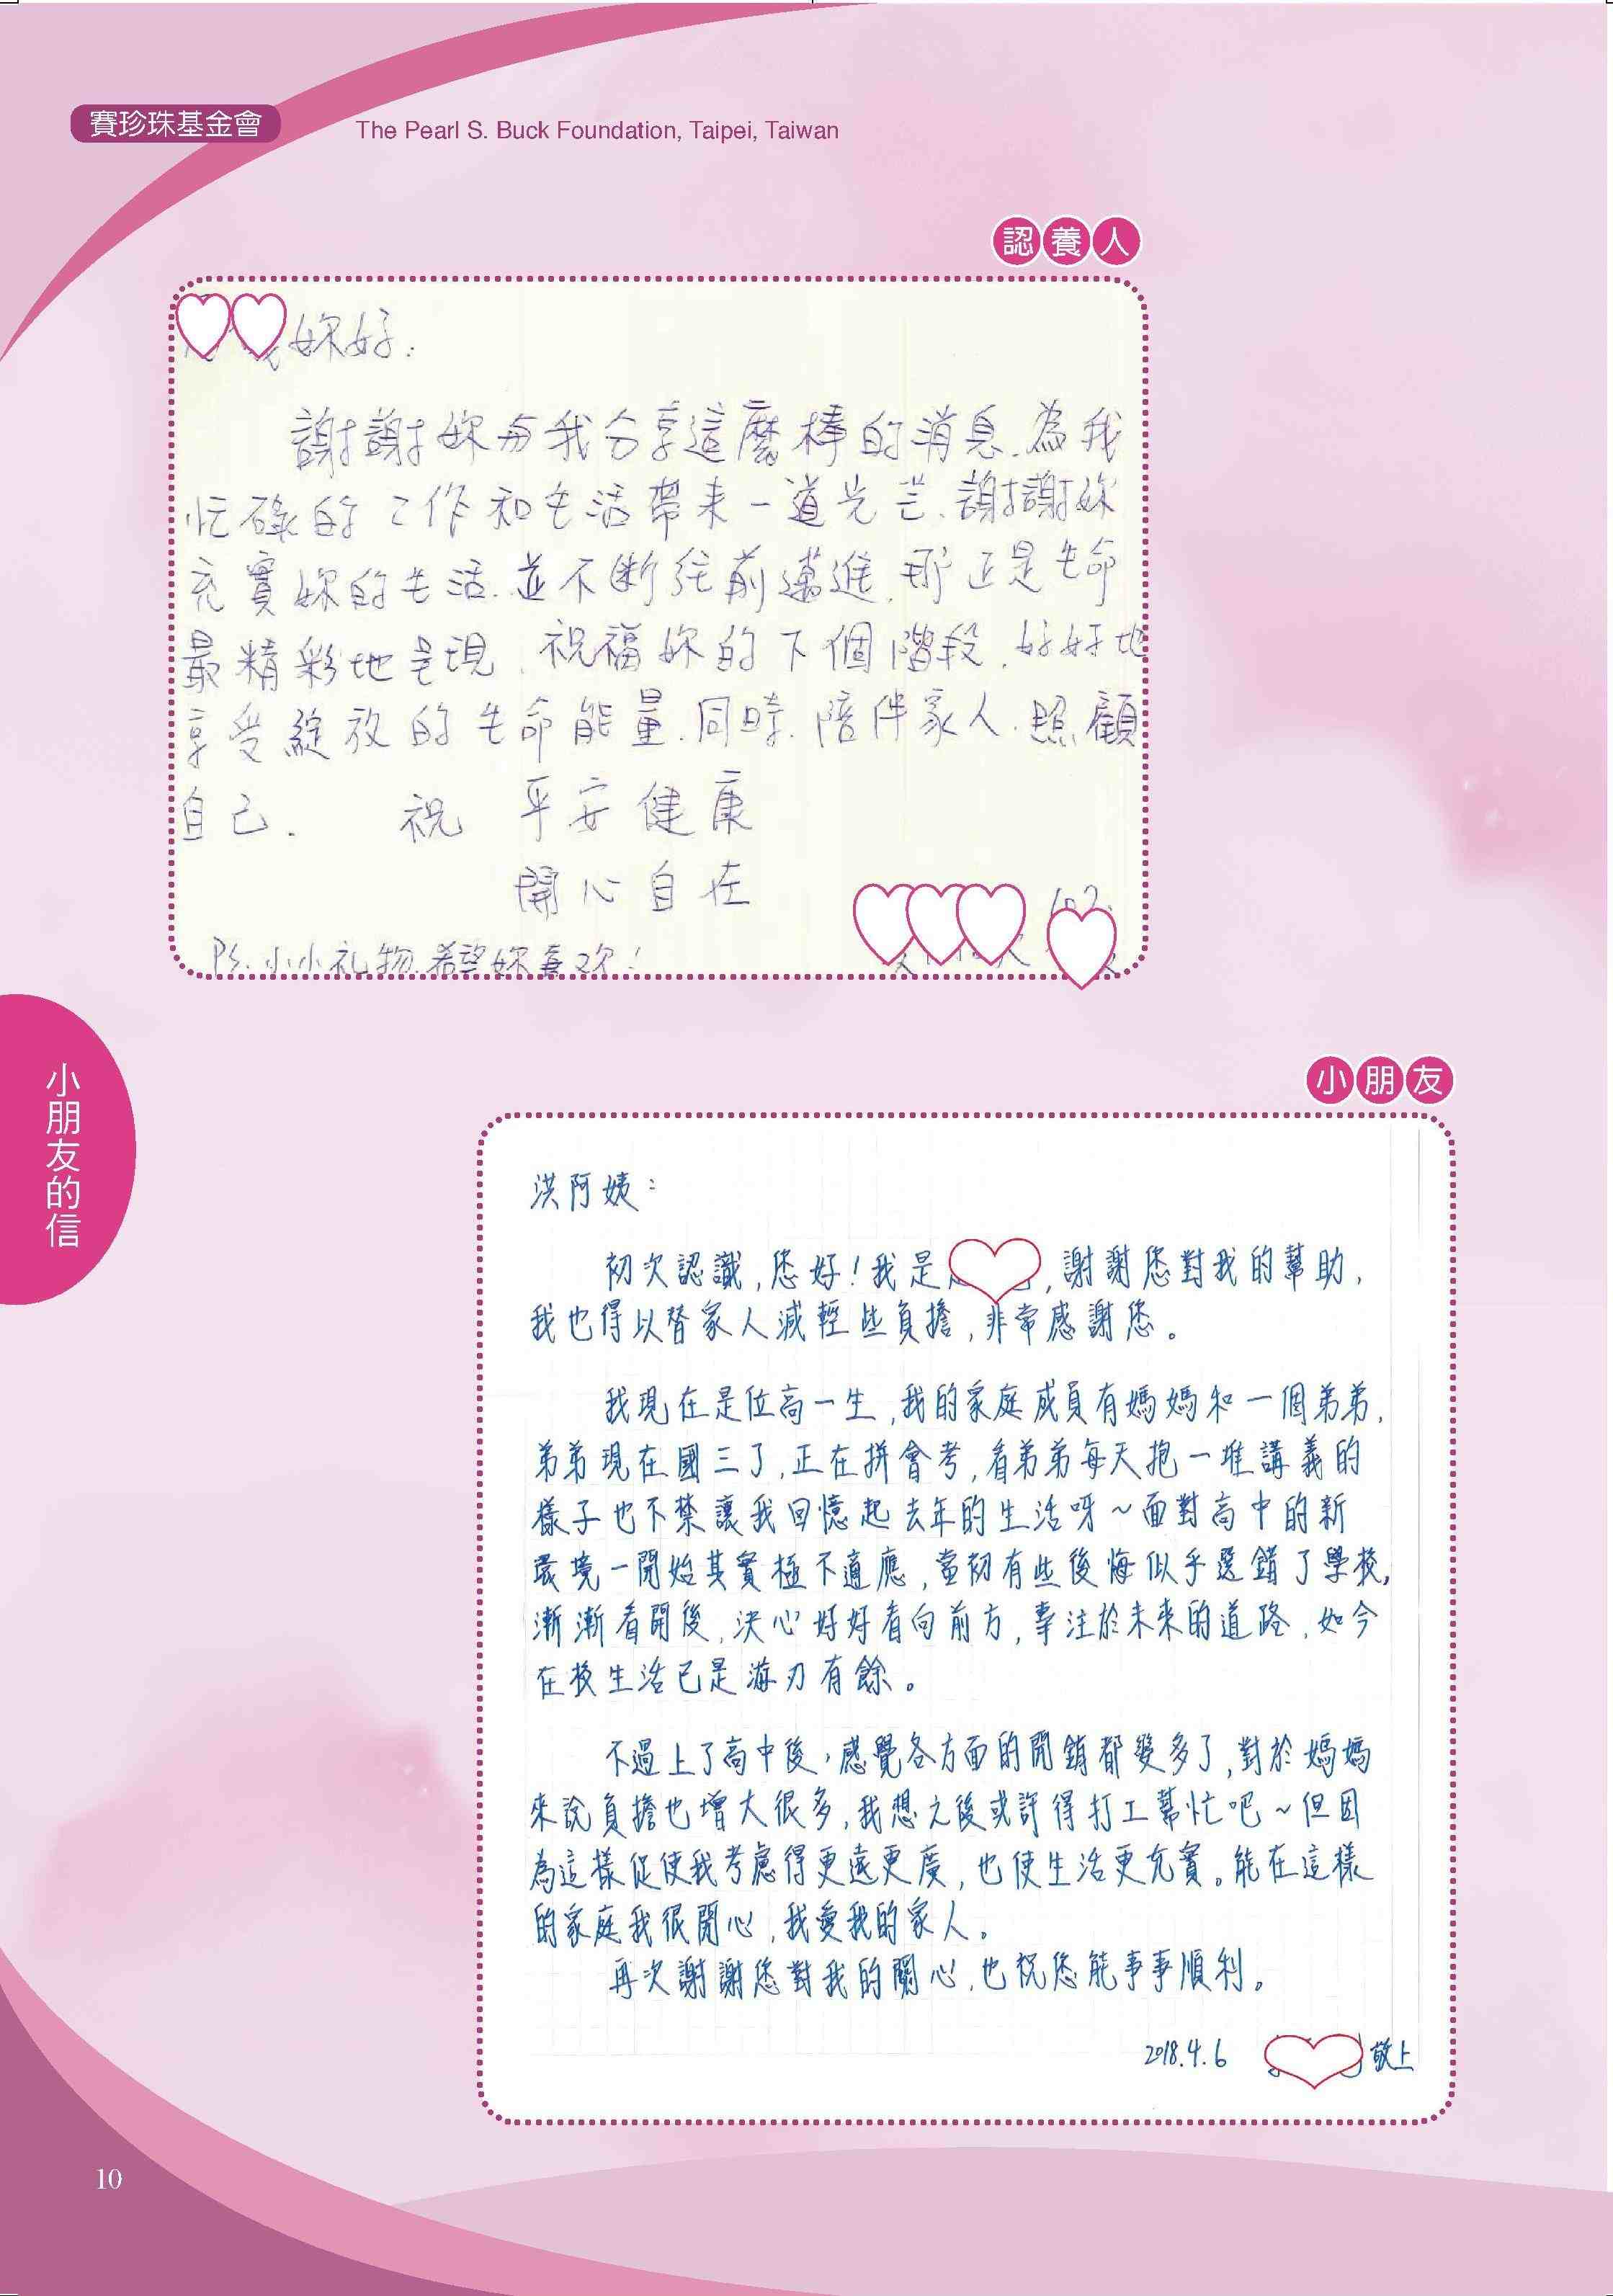 賽珍珠基金會
The Pearl S. Buck Foundation, Taipei, Taiwan
認養人
妳好.
謝謝妳与我分享這麼棒的消息.為我
忙碌的工作和生活帶來一道光芒.謝謝妳
充實妳的生活.並不斷往前邁進.那正是生命
最精彩地呈現.祝福妳的下個階段.好好地
享受綻放的生命能量.同時.陪伴家人.照顧
自己. 祝 平安健康
開心自在
PS.小小礼物.希望妳喜欢!
小朋友的信
小朋友
洪阿姨：
初次認識,您好!我是 ,謝謝您對我的幫助,
我也得以替家人減輕些負擔,非常感謝您。
我現在是位高一生,我的家庭成員有媽媽和一個弟弟,
弟弟現在國三了,正在拼會考,看弟弟每天抱一堆講義的
樣子也不禁讓我回憶起去年的生活呀~面對高中的新
環境一開始其實極不適應,當初有些後悔似乎選錯了學校,
漸漸看開後,決心好好看向前方,專注於未來的道路,如今
在校生活已是游刃有餘。
不過上了高中後，感覺各方面的開銷都變多了,對於媽媽
來說負擔也增大很多,我想之後或許得打工幫忙吧~但因
為這樣促使我考慮得更遠更廣,也使生活更充實。能在這樣
的家庭我很開心,我愛我的家人。
再次謝謝您對我的關心,也祝您能事事順利。
2018.4.6 敬上
10